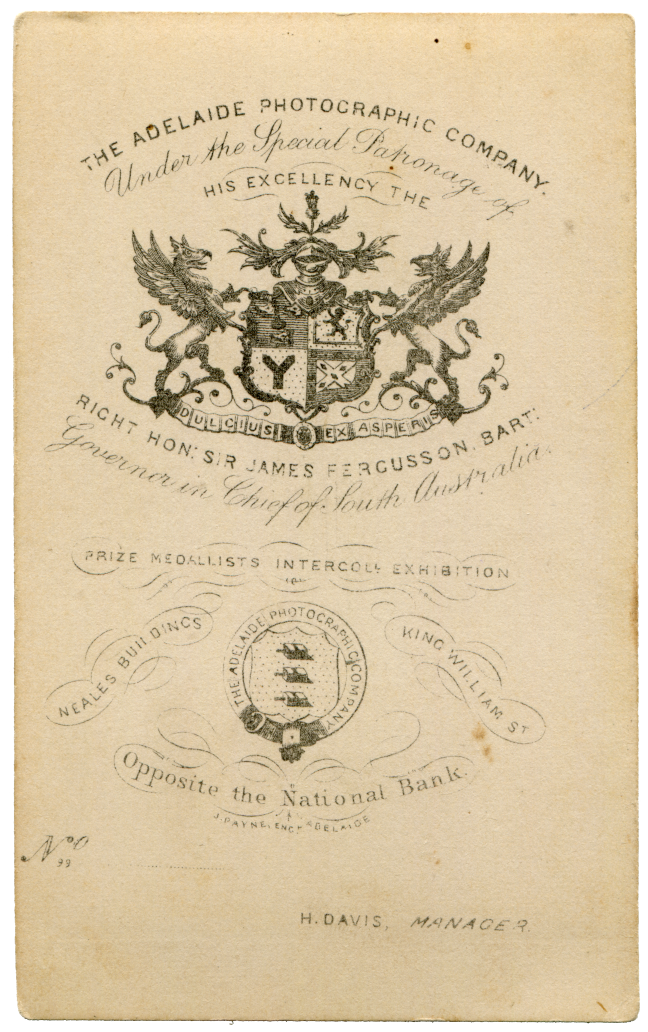 THE ADELAIDE PHOTOGRAPHIC COMPANY.
Under the Special Patronage of
HIS EXCELLENCY THE
DULCIUS EX ASPERIS
RIGHT HON: SIR JAMES FERGUSSON. BART:
Governor in Chief of South Australia.
PRIZE MEDALLISTS INTERCOLL EXHIBITION
NEALES BUILDINGS
THE ADELAIDE PHOTOGRAPHIC COMPANY
KING WILLIAM ST
Opposite the National Bank.
J. PAYNE, ENGR ADELAIDE
No
99
H. DAVIS, MANAGER.